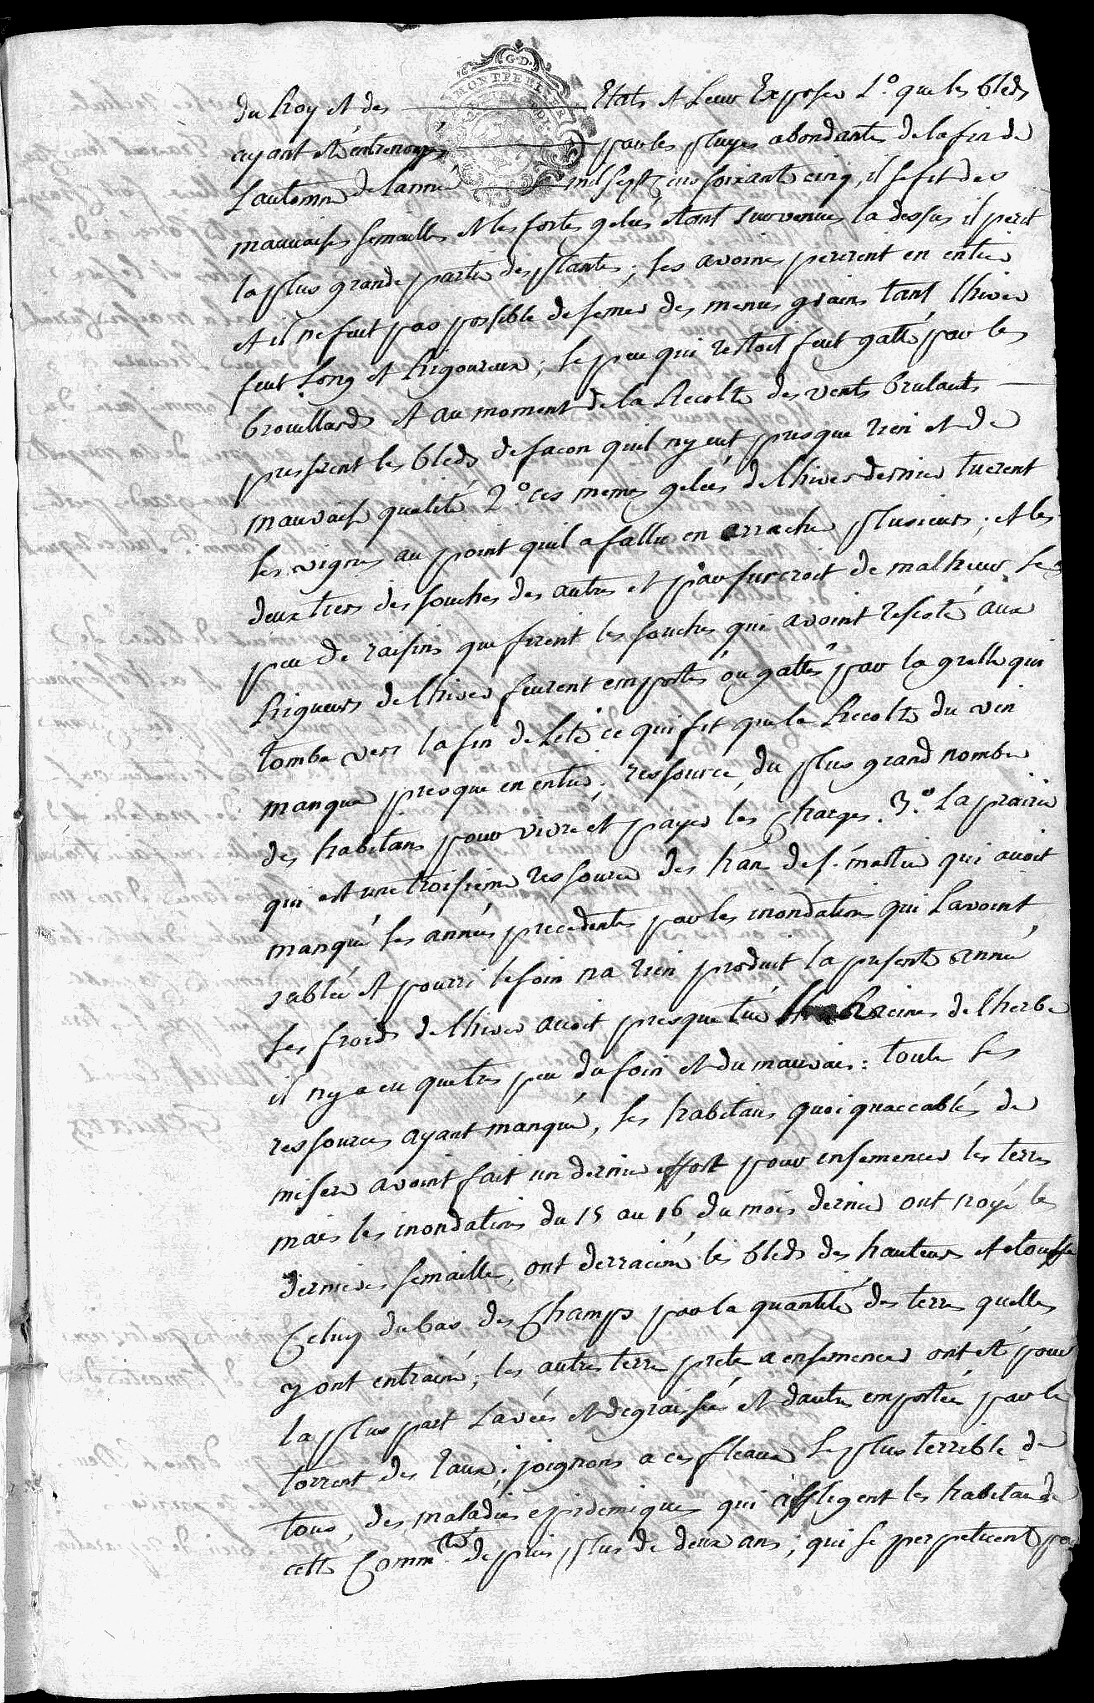 G.D.
MONTPELLIER
du Roy et des Etats et Leur Exposer 1.° que les bleds
ayant eté entrenoyés par les pluyes abondantes de la fin de
Lautomne de lannée mil sept cens soixante cinq, il se fit des
mauvaises semailles et les fortes gelées étant survenues la dessus il perit
la plus grande partie des plantes; les avoines perirent en entier
et il ne feut pas possible de semer des menus grains tant lhiver
feut Long et Rigoureux; le peu qui restoit feut gatté par les
brouillards et au moment de la Recolte des vents brulants
presserent les bleds de facon quil ny eut presque rien et de
mauvaise qualité 2.° ces memes gelées de lhiver dernier tuerent
les vignes au point quil a fallu en arracher plusieurs, et les
deux tiers des souches des autres et par surcroit de malheur Le
peu de raisins que firent les souches qui avoint resisté aux
Rigueurs de lhiver feurent emportés ou gattés par la grelle qui
tomba vers la fin de Lété ce qui fit que la Recolte du vin
manqua presque en entier, ressource du plus grand nombre
des habitans pour vivre et payer les charges. 3.° La prairie
qui est une troisieme ressource des han de s. mattre qui avoit
manqué les années precedentes par les inondations qui Lavoint
sablée et pourri le foin na rien produit la presente année
Les froids de lhiver avoit presque tué les Racines de lherbe
il ny a eu que tres peu du foin et du mauvais: toute les
ressources ayant manqué, les habitans quoi quaccablés de
misere avoint fait un dernier effort pour ensemencer les terres
mais les inondations du 15 au 16 du mois dernier ont noyé les
dernieres semailles, ont derraciné les bleds des hauteurs et etouffe
Celuy du bas des Champs par la quantité des terres quelles
y ont entrainé, les autres terres prete a ensemencer ont eté pour
la plus part Lavées et degraissées et dautres emportées par le
torrent des Eaux; joignons a ces fleaux Le plus terrible de
tous, des maladies epidemiques qui affligent les habitans de
cette Comm.té depuis plus de deux ans, qui se perpetuent par